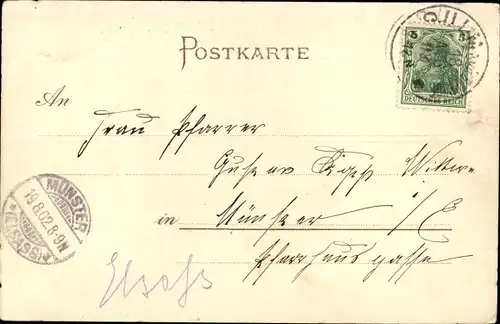 POSTKARTE
5 5
DEUTSCHES REICH
An
Frau Pfarrer
Witwe
in Münster i/E
Pfarrhausgasse
Elsass
MÜNSTER
19.8.02.8-9N